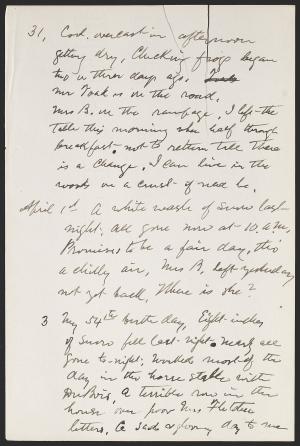 31, Cool, overcast in afternoon
getting dry, Clucking frogs began
two or three days ago.
Mr Toad is on the road.
Mrs B. on the rampage, I left the
table this morning when half through
breakfast - not to return till there
is a change, I can live in the
woods on a crust if need be.
April 1st A white wash of snow last
night, all gone now at 10 a.m,
Promises to be a fair day, tho
a chilly air, Mrs B. left yesterday
not got back, Where is she?
3 My 54th birth day, Eight inches
of snow fell last night nearly all
gone to-night, worked most of the
day in the horse stable with
a terrible row in the
house over poor Mrs
letters, A sad & gloomy day to me